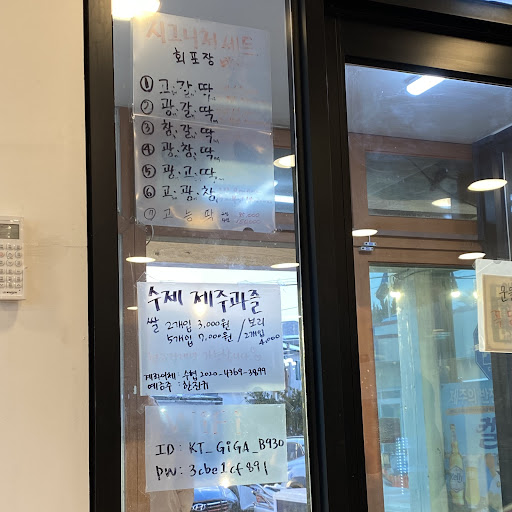 시그니처 세트
회포장
① 고.갈.딱
② 광.갈.딱
③ 참.갈.딱
④ 광.참.딱
⑤ 광.고.딱
⑥ 고.광.참
⑦ 고 능 딱
수제 제주과즐
쌀 2개입 3,000원 / 보리
5개입 7,000원 / 2개입
4,000
계좌이체 : 수협 2020-4369-3899
예금주 :
ID : KT_GiGA_B930
PW : 3cbe1cf891